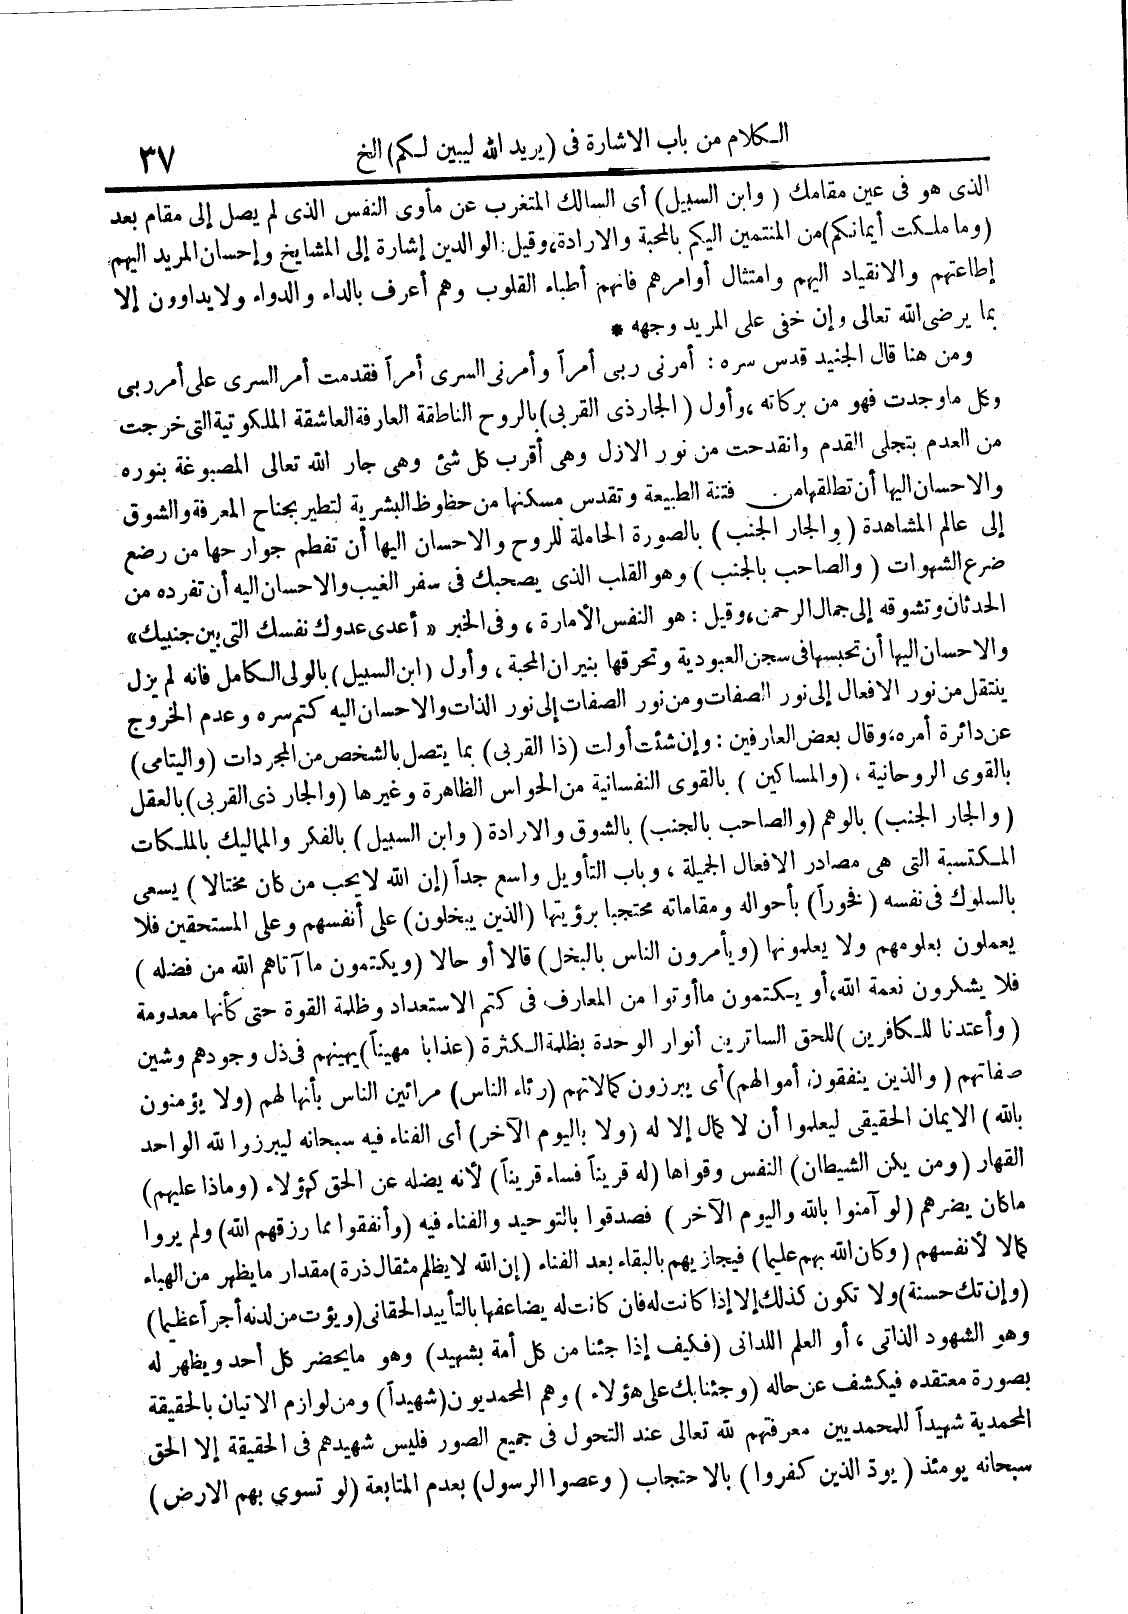 الكلام من باب الاشارة فى (يريد الله ليبين لكم) الخ
٣٧
الذى هو فى عين مقامك ( وابن السبيل) أى السالك المتغرب عن مأوى النفس الذى لم يصل إلى مقام بعد
(وما ملكت أيمانكم) من المنتمين اليكم بالمحبة والارادة، وقيل: الوالدين إشارة إلى المشايخ وإحسان المريد اليهم
إطاعتهم والانقياد اليهم وامتثال أوامرهم فانهم أطباء القلوب وهم أعرف بالداء والدواء ولا يداوون إلا
بما يرضى الله تعالى وإن خفى على المريد وجهه *
ومن هنا قال الجنيد قدس سره: أمرنى ربى أمراً وأمرنى السرى أمراً فقدمت أمر السرى على أمر ربى
وكل ما وجدت فهو من بركاته، وأول ( الجار ذى القربى) بالروح الناطقة العارفة العاشقة الملكوتية التى خرجت
من العدم بتجلى القدم وانقدحت من نور الازل وهى أقرب كل شئ وهى جار الله تعالى المصبوغة بنوره
والاحسان اليها أن تطلقها من فتنة الطبيعة وتقدس مسكنها من حظوظ البشرية لتطير بجناح المعرفة والشوق
إلى عالم المشاهدة ( والجار الجنب ) بالصورة الحاملة للروح والاحسان اليها أن تفطم جوارحها من رضع
ضرع الشهوات ( والصاحب بالجنب ) وهو القلب الذى يصحبك فى سفر الغيب والاحسان اليه أن تفرده من
الحدثان وتشوقه إلى جمال الرحمن، وقيل : هو النفس الأمارة ، وفى الخبر « أعدى عدوك نفسك التى بين جنبيك»
والاحسان اليها أن تحبسها فى سجن العبودية وتحرقها بنيران المحبة ، وأول (ابن السبيل) بالولى الكامل فانه لم يزل
ينتقل من نور الافعال إلى نور الصفات ومن نور الصفات إلى نور الذات والاحسان اليه كتم سره وعدم الخروج
عن دائرة أمره، وقال بعض العارفين : وإن شئت أولت (ذا القربى) بما يتصل بالشخص من المجردات (واليتامى)
بالقوى الروحانية ، (والمساكين ) بالقوى النفسانية من الحواس الظاهرة وغيرها (والجار ذى القربى) بالعقل
(والجار الجنب) بالوهم (والصاحب بالجنب) بالشوق والارادة ( وابن السبيل ) بالفكر والمماليك بالملكات
المكتسبة التى هى مصادر الافعال الجميلة ، وباب التأويل واسع جداً (إن الله لا يحب من كان مختالا ) يسعى
بالسلوك فى نفسه ( فخوراً) بأحواله ومقاماته محتجبا برؤيتها (الذين يبخلون) على أنفسهم وعلى المستحقين فلا
يعملون بعلومهم ولا يعلمونها (ويأمرون الناس بالبخل) قالا أو حالا (ويكتمون ما آتاهم الله من فضله )
فلا يشكرون نعمة الله، أو يكتمون ما أوتوا من المعارف فى كتم الاستعداد وظلمة القوة حتى كأنها معدومة
( وأعتدنا للكافرين ) للحق الساترين أنوار الوحدة بظلمة الكثرة (عذابا مهيناً) يهينهم فى ذل وجودهم وشين
صفاتهم ( والذين ينفقون أموالهم) أى يبرزون كمالاتهم (رئاء الناس) مرائين الناس بأنها لهم (ولا يؤمنون
بالله) الايمان الحقيقى ليعلموا أن لا كمال إلا له (ولا باليوم الآخر) أى الفناء فيه سبحانه ليبرزوا لله الواحد
القهار (ومن يكن الشيطان) النفس وقواها (له قريناً فساء قريناً) لأنه يضله عن الحق كهؤلاء (وماذا عليهم)
ما كان يضرهم (لو آمنوا بالله واليوم الآخر ) فصدقوا بالتوحيد والفناء فيه (وأنفقوا مما رزقهم الله) ولم يروا
كمالا لأنفسهم (وكان الله بهم عليما) فيجازيهم بالبقاء بعد الفناء (إن الله لا يظلم مثقال ذرة) مقدار ما يظهر من الهباء
(وإن تك حسنة) ولا تكون كذلك إلا إذا كانت له فان كانت له يضاعفها بالتأييد الحقانى (ويؤت من لدنه أجراً عظيما)
وهو الشهود الذاتى ، أو العلم اللدانى (فكيف إذا جئنا من كل أمة بشهيد) وهو ما يحضر كل أحد ويظهر له
بصورة معتقده فيكشف عن حاله (وجئنا بك على هؤلاء ) وهم المحمديون (شهيداً) ومن لوازم الاتيان بالحقيقة
المحمدية شهيداً للمحمديين معرفتهم لله تعالى عند التحول فى جميع الصور فليس شهيدهم فى الحقيقة إلا الحق
سبحانه يومئذ ( يودّ الذين كفروا ) بالاحتجاب ( وعصوا الرسول) بعدم المتابعة (لو تسوي بهم الارض )